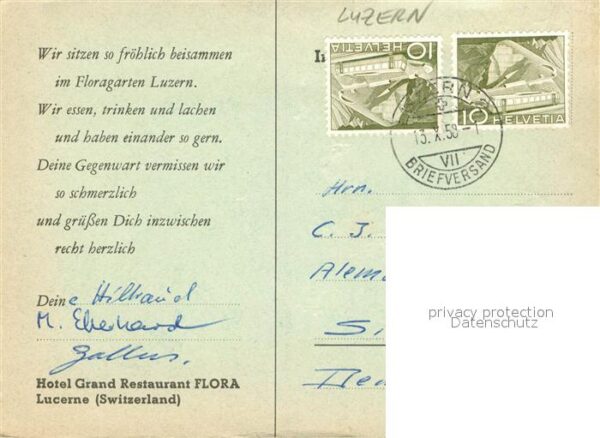 LUZERN
Wir sitzen so fröhlich beisammen
im Floragarten Luzern.
Wir essen, trinken und lachen
und haben einander so gern.
Deine Gegenwart vermissen wir
so schmerzlich
und grüßen Dich inzwischen
recht herzlich
Deine Hiltraud
M. Eberhard
Gallus.
Hotel Grand Restaurant FLORA
Lucerne (Switzerland)
HELVETIA 10
10 HELVETIA
13.X.58-1
VII
BRIEFVERSAND
Hrn.
C. J.
privacy protection
Datenschutz